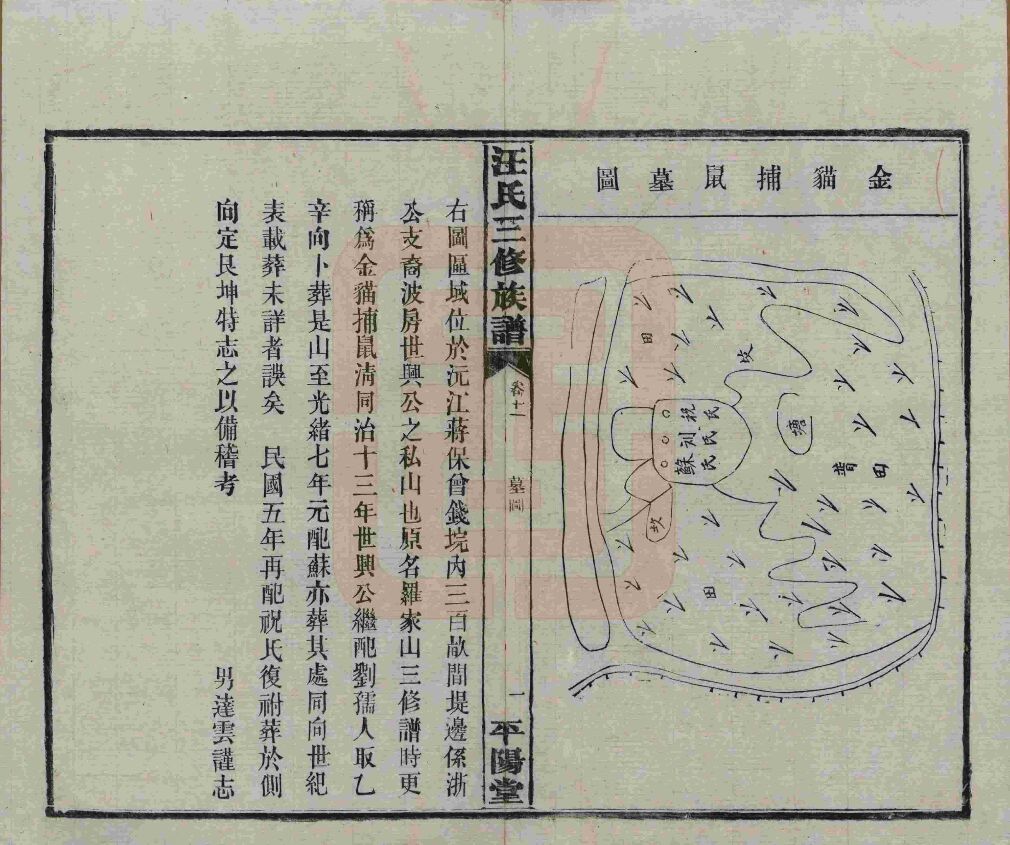 金貓捕鼠墓圖
田
坟
塘
祝氏
刘氏
蘇氏
田
坟
田
汪氏三修族譜
卷十一
墓圖
一
平陽堂
右圖區域位於沅江蔣保曾錢垸內三百畝間堤邊係浙
公支裔波房世興公之私山也原名羅家山三修譜時更
稱爲金貓捕鼠淸同治十三年世興公繼配劉孺人取乙
辛向卜葬是山至光緖七年元配蘇亦葬其處同向世紀
表載葬未詳者誤矣　民國五年再配祝氏復祔葬於側
向定艮坤特志之以備稽考
男達雲謹志